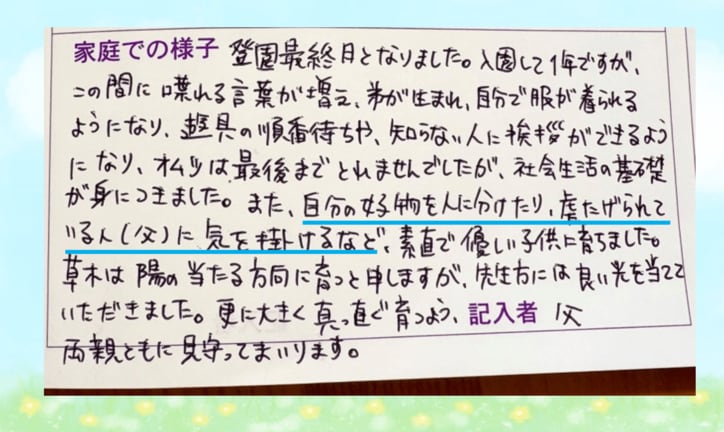 家庭での様子 登園最終月となりました。入園して1年ですが、
この間に喋れる言葉が増え、弟が生まれ、自分で服が着られる
ようになり、遊具の順番待ちや、知らない人に挨拶ができるよう
になり、オムツは最後までとれませんでしたが、社会生活の基礎
が身につきました。また、自分の好物を人に分けたり、虐たげられて
いる人(父)に気を掛けるなど、素直で優しい子供に育ちました。
草木は陽の当たる方向に育つと申しますが、先生方には良い光を当てて
いただきました。更に大きく真っ直ぐ育つよう、記入者 父
両親ともに見守ってまいります。